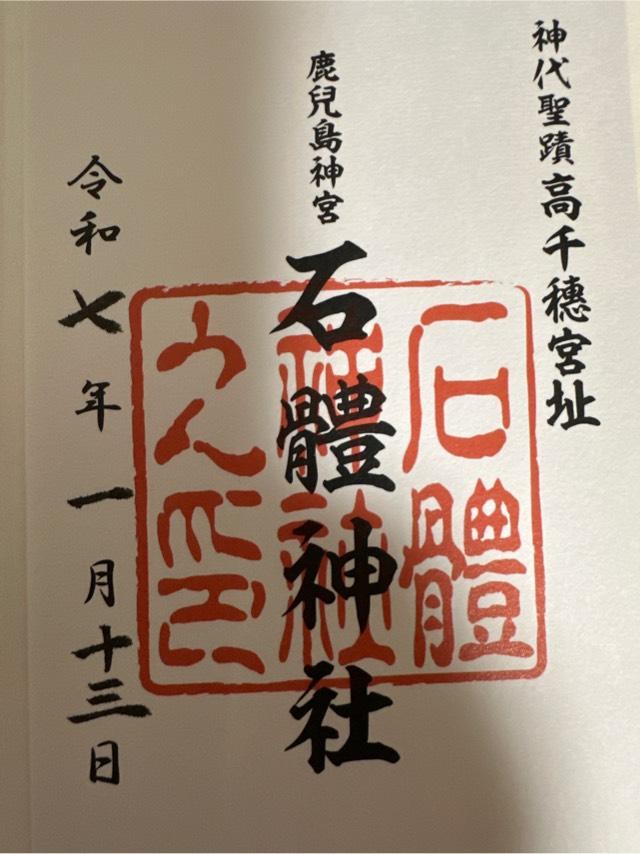 神代聖蹟高千穗宮址
鹿兒島神宮
石體神社
令和七年一月十三日
石體
神社
之印